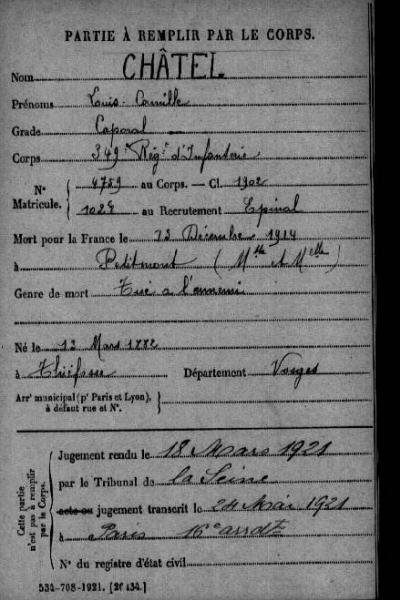 PARTIE À REMPLIR PAR LE CORPS.
Nom CHÂTEL
Prénoms Louis-Camille
Grade Caporal
Corps 349e Régt d'Infanterie
N° Matricule. 4789 au Corps. — Cl. 1902
1027 au Recrutement Epinal
Mort pour la France le 12 Décembre 1914
à Petitmont (Mthe et Melle)
Genre de mort Tué a l'ennemi
Né le 12 Mars 1882
à Thiéfosse Département Vosges
Arrt municipal (pr Paris et Lyon), à défaut rue et N°.
Cette partie n'est pas à remplir par le Corps.
Jugement rendu le 18 Mars 1921
par le Tribunal de la Seine
acte ou jugement transcrit le 24 Mai 1921
à Paris 16e arrdt
N° du registre d'état civil
534-708-1921. [26434.]